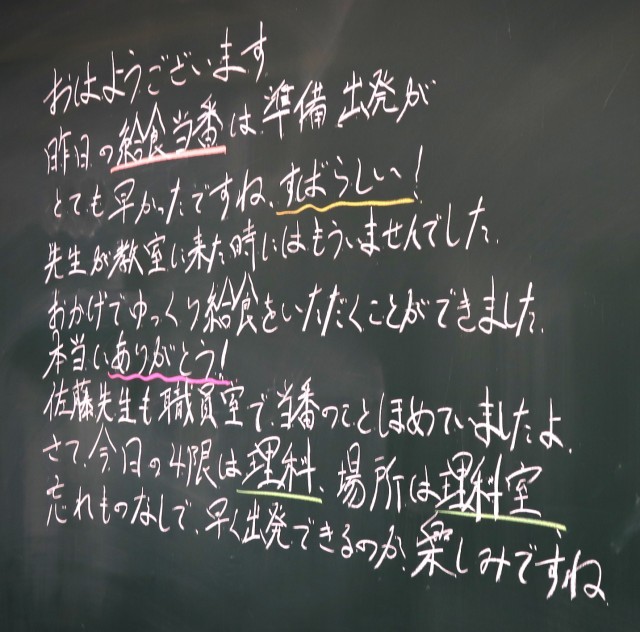 おはようございます
昨日の給食当番は、準備、出発が
とても早かったですね、すばらしい!
先生が教室に来た時にはもういませんでした。
おかげでゆっくり給食をいただくことができました。
本当にありがとう!
佐藤先生も職員室で、当番のことほめていましたよ。
さて、今日の4限は理科、場所は理科室
忘れものなしで、早く出発できるのか?楽しみですね